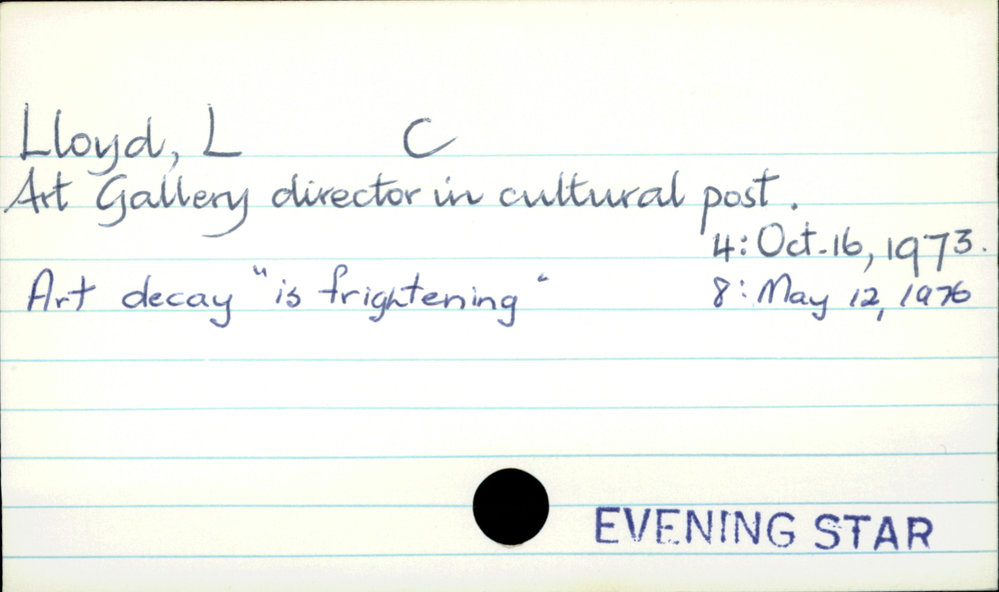 Lloyd, L C
Art Gallery director in cultural post.
4: Oct. 16, 1973.
Art decay "is frightening" 8: May 12, 1976
EVENING STAR